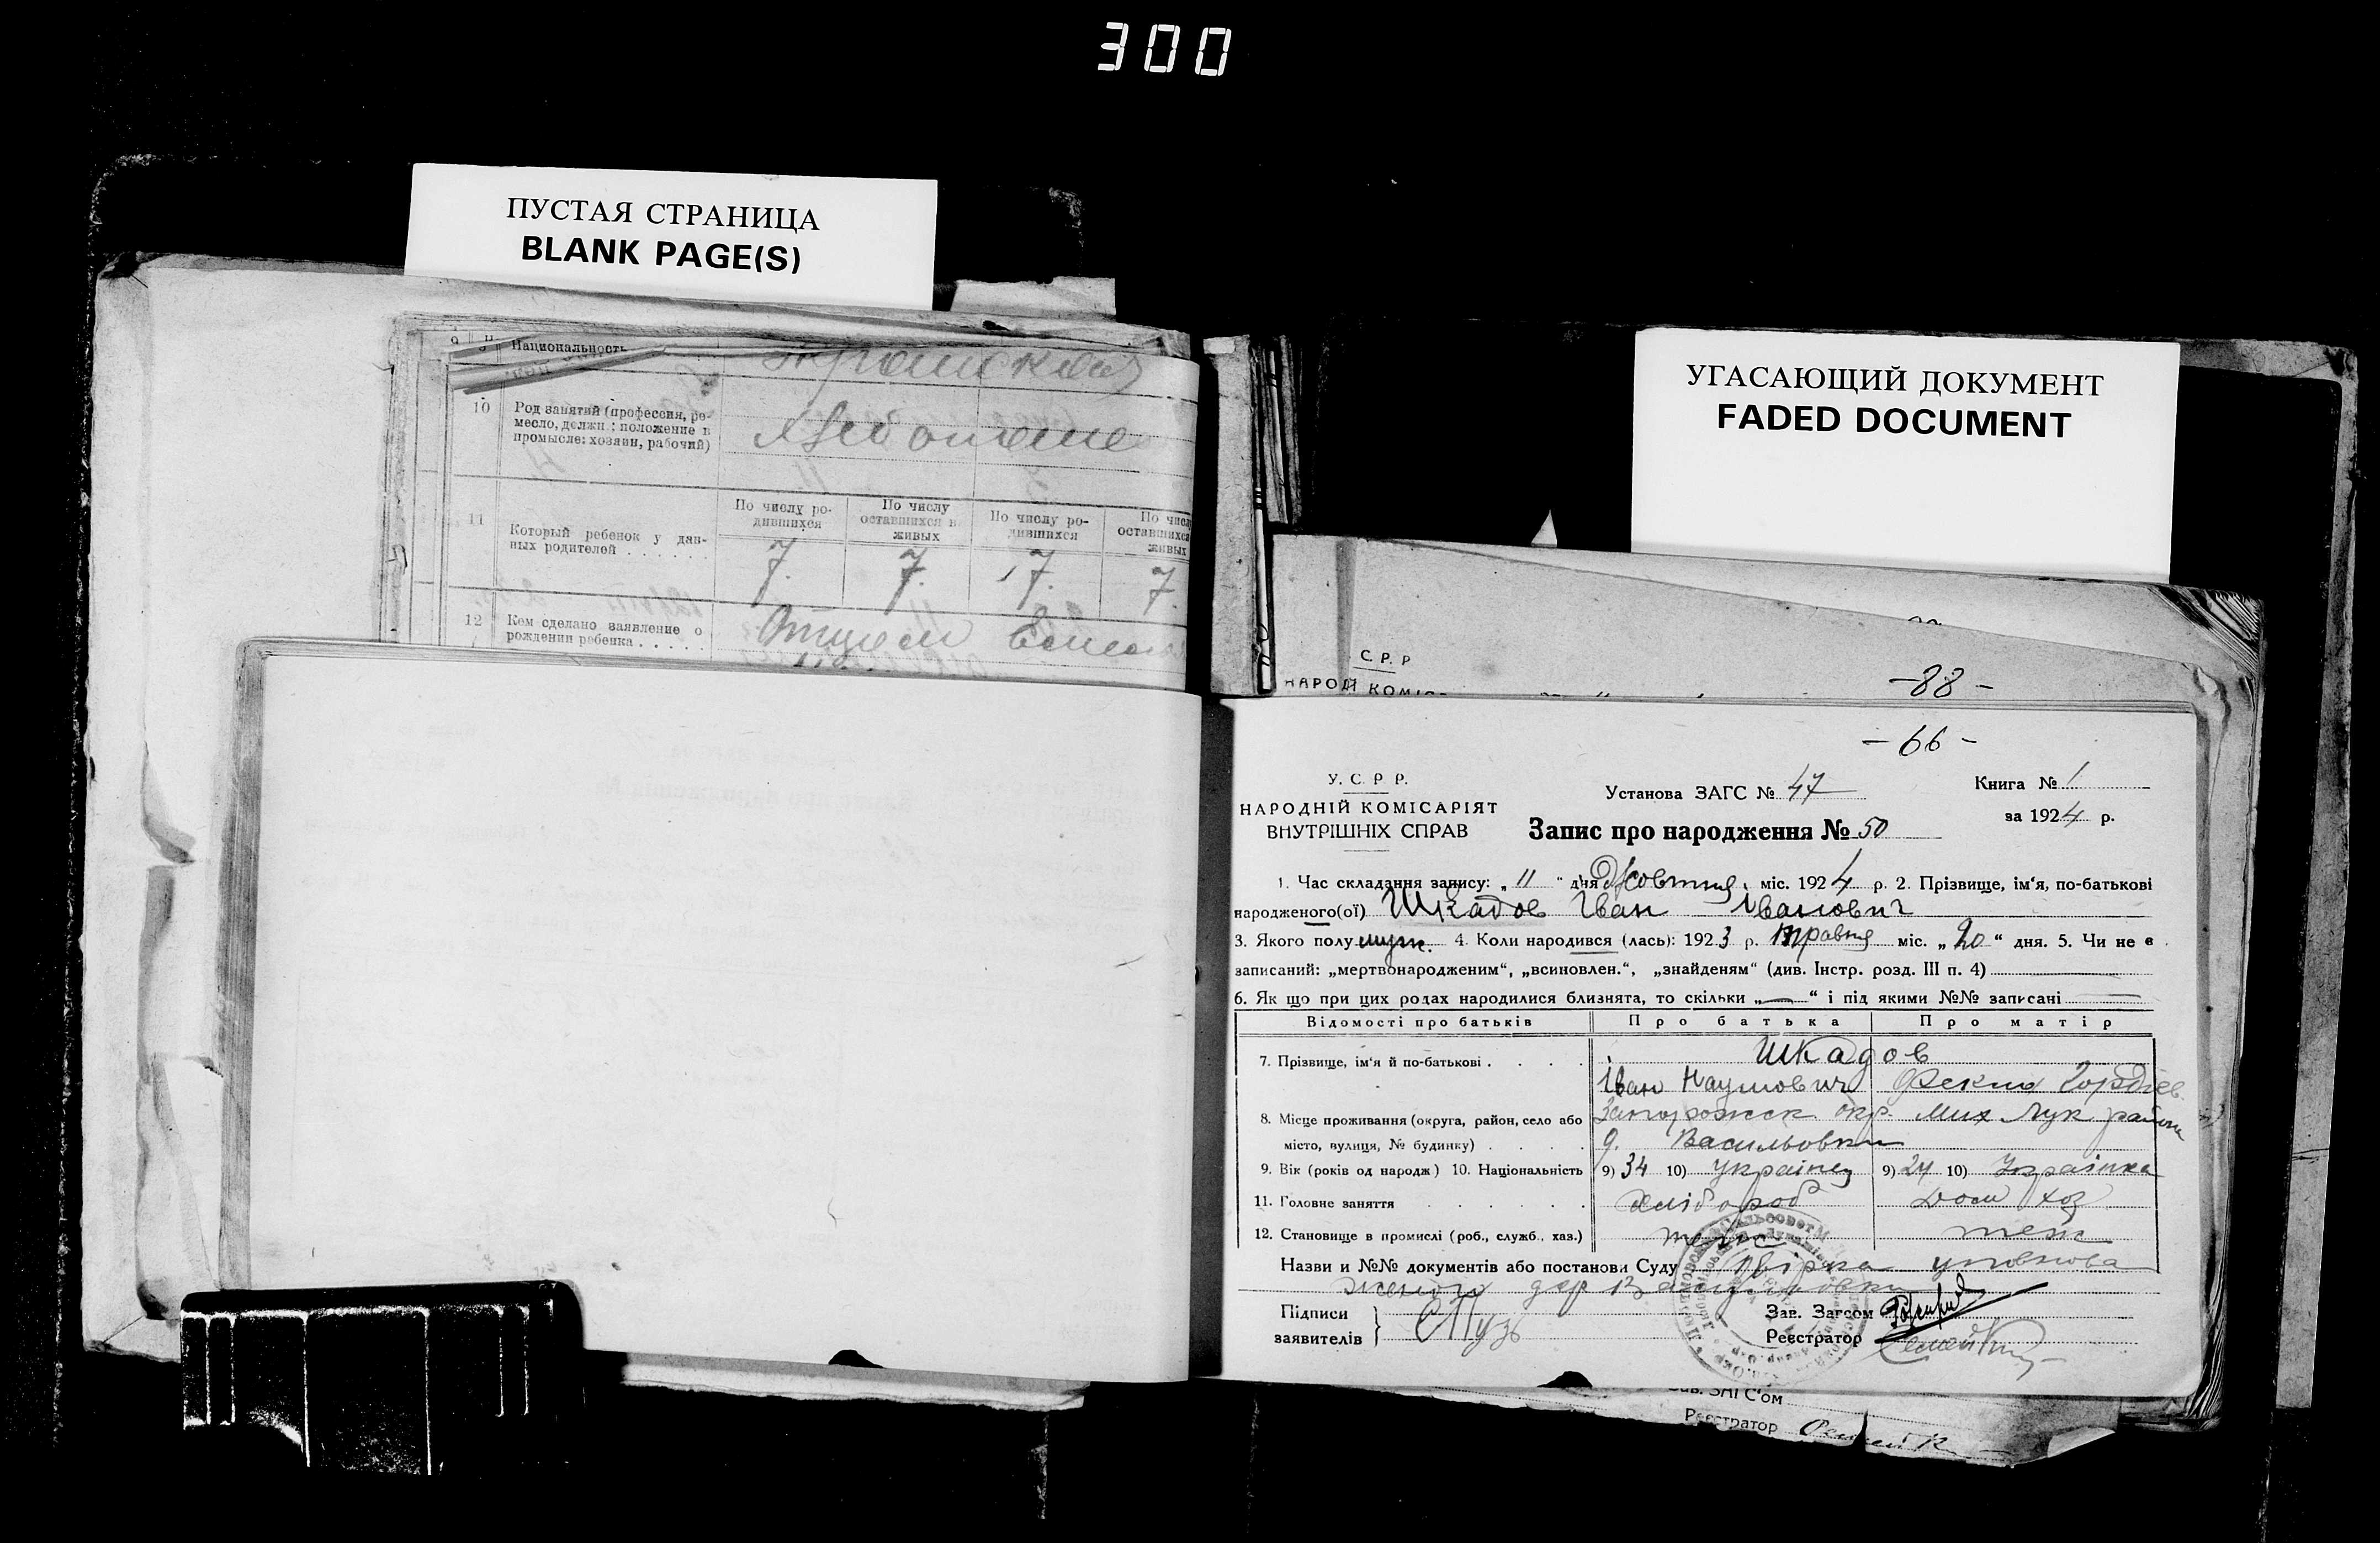 300
ПУСТАЯ СТРАНИЦА
BLANK PAGE(S)
УГАСАЮЩИЙ ДОКУМЕНТ
FADED DOCUMENT
Национальность
10 Род занятий (профессия, ре-
месло, должн.: положение в
промысле: хозяин, рабочий)
11 Который ребенок у дан-
ных родителей . . . . . .
По числу ро-
дившихся
По числу
оставшихся в
живых
По числу ро-
дившихся
По числу
оставшихся
живых
7. 7. 7. 7.
12 Кем сделано заявление о
рождении ребенка . . . . .
Отцом
С. Р. Р
НАРОД КОМІС
-88-
-66-
У. С. Р. Р.
НАРОДНІЙ КОМІСАРІЯТ
ВНУТРІШНІХ СПРАВ
Установа ЗАГС № 47
Книга № 1
за 1924 р.
Запис про народження № 50
1. Час складання запису: „11" дня Жовтня міс. 1924 р. 2. Прізвище, ім'я, по-батькові
народженого(ої) Шкадов Іван Іванович
3. Якого полу муж. 4. Коли народився (лась): 1923 р. травня міс. „20" дня. 5. Чи не є
записаний: „мертвонародженим", „всиновлен.", „знайденям" (див. Інстр. розд. III п. 4)
6. Як що при цих родах народилися близнята, то скільки „—" і під якими №№ записані —
Відомості про батьків Про батька Про матір
7. Прізвище, ім'я й по-батькові . . . . Шкадов
Іван Наумович Фекла Гордіев.
8. Місце проживання (округа, район, село або Запорожск. окр. Мих Лук района
місто, вулиця, № будинку) . . . . Васильовки
9. Вік (років од народж) 10. Національність 9) 34 10) Українец 9) 24 10) Українка
11. Головне заняття . . . . . . Хлібороб Дом хоз
12. Становище в промислі (роб., служб., хаз.) теж
Назви и №№ документів або постанови Суду
Підписи
заявителів
Зав. Загсом
Реєстратор
Зав. ЗАГС'ом
Реєстратор